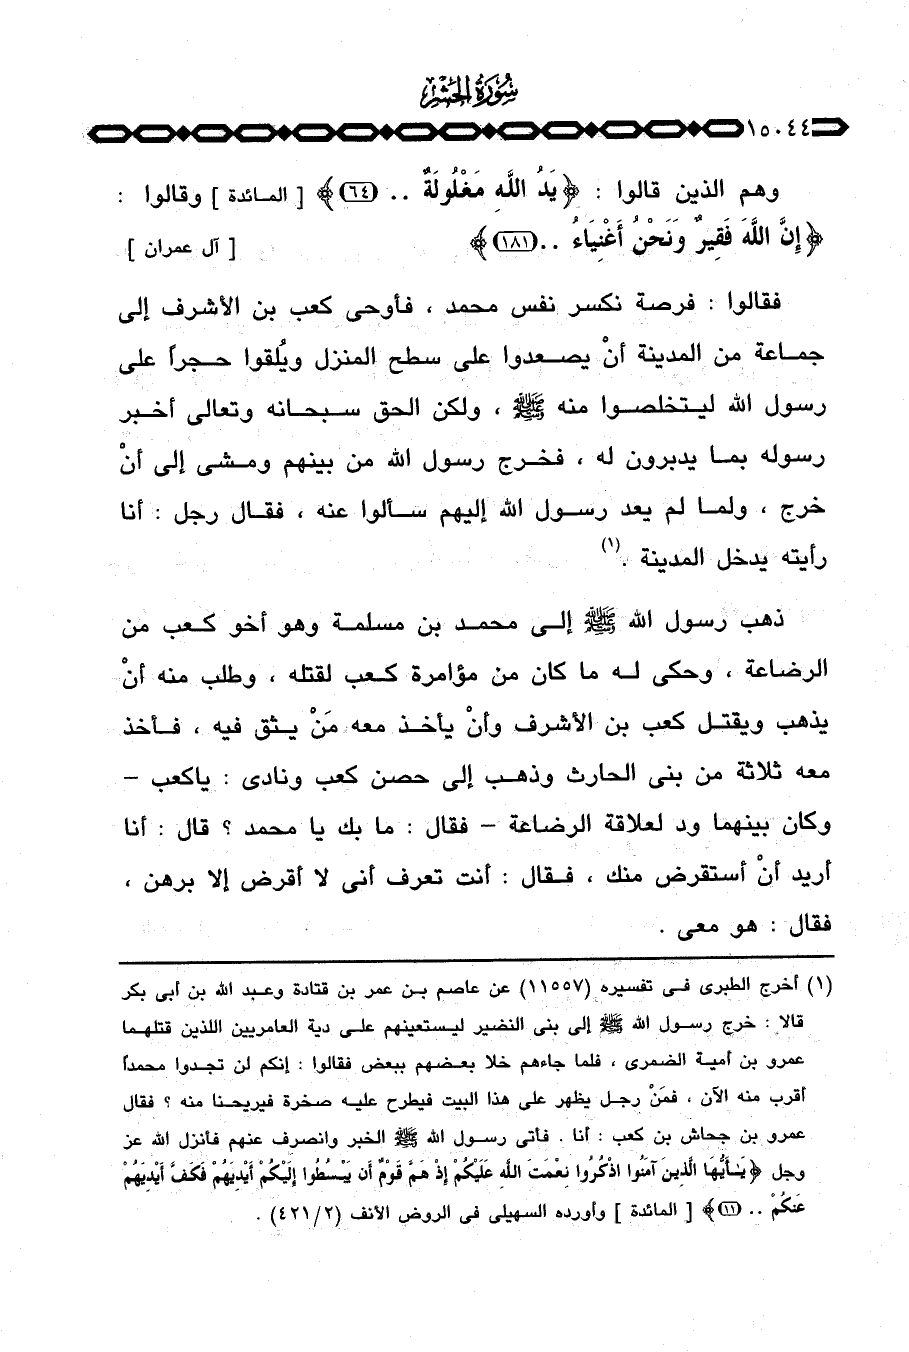 سُورَةُ الحَشْرِ
١٥٠٤٤
وهم الذين قالوا : ﴿ يَدُ اللَّهِ مَغْلُولَةٌ .. (٦٤)﴾ [ المائدة ] وقالوا :
﴿ إِنَّ اللَّهَ فَقِيرٌ وَنَحْنُ أَغْنِيَاءُ .. (١٨١)﴾ [ آل عمران ]
فقالوا : فرصة نكسر نفس محمد ، فأوحى كعب بن الأشرف إلى
جماعة من المدينة أنْ يصعدوا على سطح المنزل ويُلقوا حجراً على
رسول الله ليتخلصوا منه ﷺ ، ولكن الحق سبحانه وتعالى أخبر
رسوله بما يدبرون له ، فخرج رسول الله من بينهم ومشى إلى أنْ
خرج ، ولما لم يعد رسول الله إليهم سألوا عنه ، فقال رجل : أنا
رأيته يدخل المدينة .(١)
ذهب رسول الله ﷺ إلى محمد بن مسلمة وهو أخو كعب من
الرضاعة ، وحكى له ما كان من مؤامرة كعب لقتله ، وطلب منه أنْ
يذهب ويقتل كعب بن الأشرف وأنْ يأخذ معه مَنْ يثق فيه ، فأخذ
معه ثلاثة من بنى الحارث وذهب إلى حصن كعب ونادى : ياكعب –
وكان بينهما ود لعلاقة الرضاعة – فقال : ما بك يا محمد ؟ قال : أنا
أريد أنْ أستقرض منك ، فقال : أنت تعرف أنى لا أقرض إلا برهن ،
فقال : هو معى .
(١) أخرج الطبرى فى تفسيره (١١٥٥٧) عن عاصم بن عمر بن قتادة وعبد الله بن أبى بكر
قالا : خرج رسول الله ﷺ إلى بنى النضير ليستعينهم على دية العامريين اللذين قتلهما
عمرو بن أمية الضمرى ، فلما جاءهم خلا بعضهم ببعض فقالوا : إنكم لن تجدوا محمداً
أقرب منه الآن ، فمَنْ رجل يظهر على هذا البيت فيطرح عليه صخرة فيريحنا منه ؟ فقال
عمرو بن جحاش بن كعب : أنا . فأتى رسول الله ﷺ الخبر وانصرف عنهم فأنزل الله عز
وجل ﴿ يَـٰأَيُّهَا الَّذِينَ آمَنُوا اذْكُرُوا نِعْمَتَ اللَّهِ عَلَيْكُمْ إِذْ هَمَّ قَوْمٌ أَن يَبْسُطُوا إِلَيْكُمْ أَيْدِيَهُمْ فَكَفَّ أَيْدِيَهُمْ
عَنكُمْ .. (١١)﴾ [ المائدة ] وأورده السهيلى فى الروض الأنف (٤٢١/٢) .